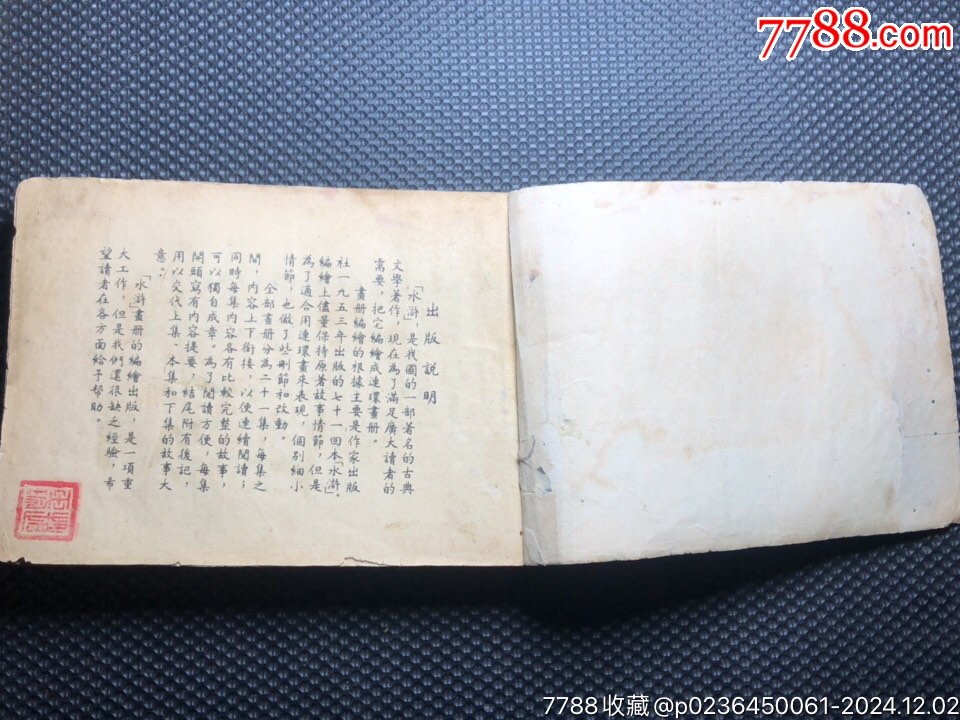 7788.com
出版說明
「水滸」，是我國的一部著名的古典
文學著作，現在為了滿足廣大讀者的
需要，把它編繪成連環畫册。
畫册編繪的根據主要是作家出版
社一九五三年出版的七十一回本「水滸」，
編繪上儘量保持原著故事情節，但是
為了適合用連環畫來表現，個别細小
情節，也做了些刪節和改動。
全部畫册分為二十一集，每集之
間，内容上下銜接，以便連續閱讀；
同時每集内容各有比較完整的故事，
可以獨自成章。為了閱讀方便，每集
開頭寫有内容提要，結尾附有後記，
用以交代上集、本集和下集的故事大
意；
「水滸」畫册的編繪出版，是一項重
大工作，但是我們還很缺乏經驗，希
望讀者在各方面給予幫助。
7788收藏@p0236450061-2024.12.02